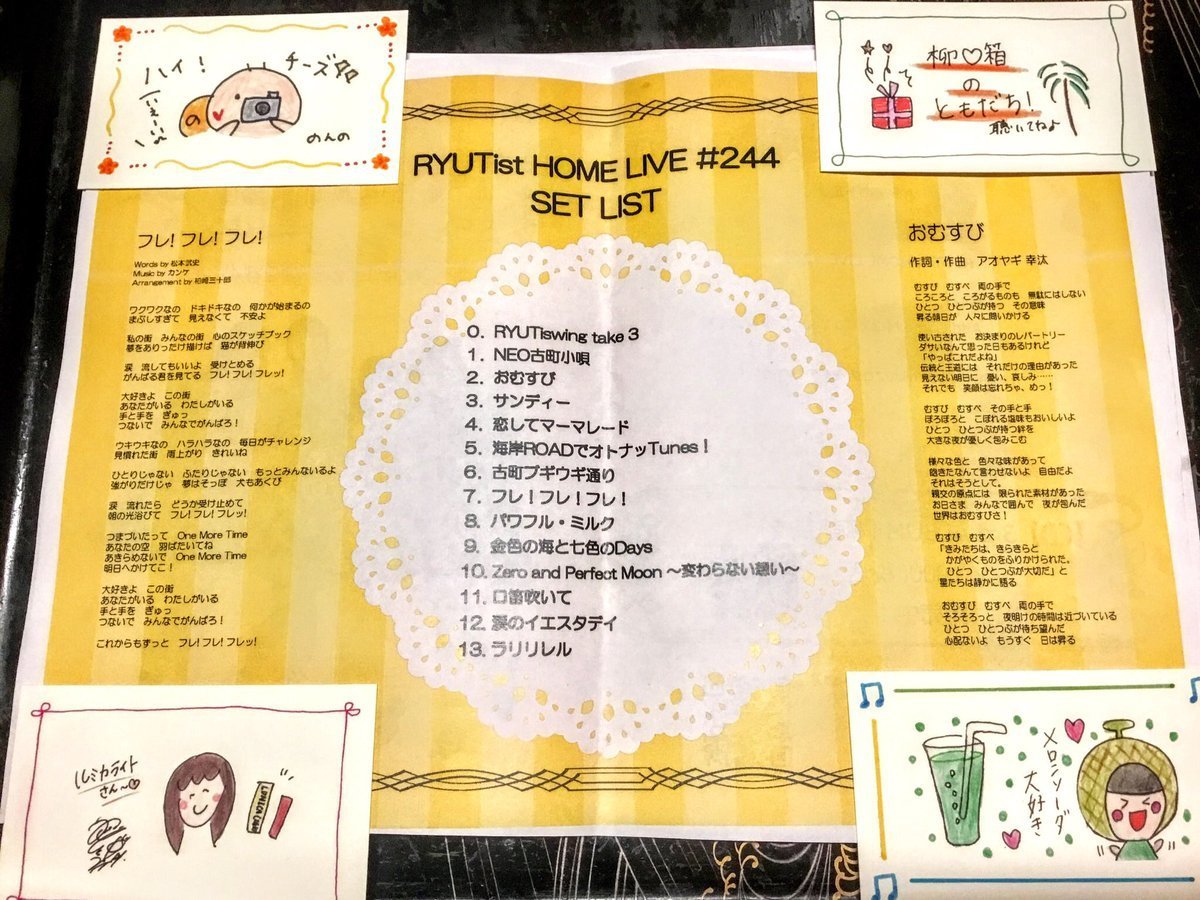 ハイ!
チーズ
いぇーい
の
のんの
柳♡箱
の
ともだち!
聴いてねよ
RYUTist HOME LIVE #244
SET LIST
フレ! フレ! フレ!
Words by 松本武史
Music by カンケ
Arrangement by 柏崎三十郎
ワクワクなの ドキドキなの 何かが始まるの
まぶしすぎて 見えなくて 不安よ
私の街 みんなの街 心のスケッチブック
夢をありったけ描けば 猫が背伸び
涙 流してもいいよ 受けとめる
がんばる君を見てる フレ! フレ! フレッ!
大好きよ この街
あなたがいる わたしがいる
手と手を ぎゅっ
つないで みんなでがんばろ!
ウキウキなの ハラハラなの 毎日がチャレンジ
見慣れた街 雨上がり きれいね
ひとりじゃない ふたりじゃない もっとみんないるよ
強がりだけじゃ 夢はそっぽ 犬もあくび
涙 流れたら どうか受け止めて
朝の光浴びて フレ! フレ! フレッ!
つまづいたって One More Time
あなたの空 羽ばたいてね
あきらめないで One More Time
明日へかけてこ!
大好きよ この街
あなたがいる わたしがいる
手と手を ぎゅっ
つないで みんなでがんばろ!
これからもずっと フレ! フレ! フレッ!
0. RYUTiswing take 3
1. NEO古町小唄
2. おむすび
3. サンディー
4. 恋してマーマレード
5. 海岸ROADでオトナッTunes!
6. 古町ブギウギ通り
7. フレ!フレ!フレ!
8. パワフル・ミルク
9. 金色の海と七色のDays
10. Zero and Perfect Moon ～変わらない想い～
11. 口笛吹いて
12. 涙のイエスタデイ
13. ラリリレル
おむすび
作詞・作曲 アオヤギ 幸汰
むすび むすべ 両の手で
ころころと ころがるものも 無駄にはしない
ひとつ ひとつぶが持つ その意味
昇る朝日が 人々に問いかける
使い古された お決まりのレパートリー
ダサいなんて思った日もあるけれど
「やっぱこれだよね」
伝統と王道には それだけの理由があった
見えない明日に 憂い、哀しみ……
それでも 笑顔は忘れちゃ、めっ!
むすび むすべ その手と手
ぽろぽろと こぼれる塩味もおいしいよ
ひとつ ひとつぶが持つ絆を
大きな夜が優しく包みこむ
様々な色と 色々な味があって
飽きたなんて言わせないよ 自由だよ
それはそうとして。
親交の原点には 限られた素材があった
お日さま みんなで囲んで 夜が包んだ
世界はおむすびさ!
むすび むすべ
「きみたちは、きらきらと
かがやくものをふりかけられた。
ひとつ ひとつぶが大切だ」と
星たちは静かに語る
おむすび むすべ 両の手で
そろそろっと 夜明けの時間は近づいている
ひとつ ひとつぶが待ち望んだ
心配ないよ もうすぐ 日は昇る
ルミカライト
さん〜♡
メロンソーダ
大好き